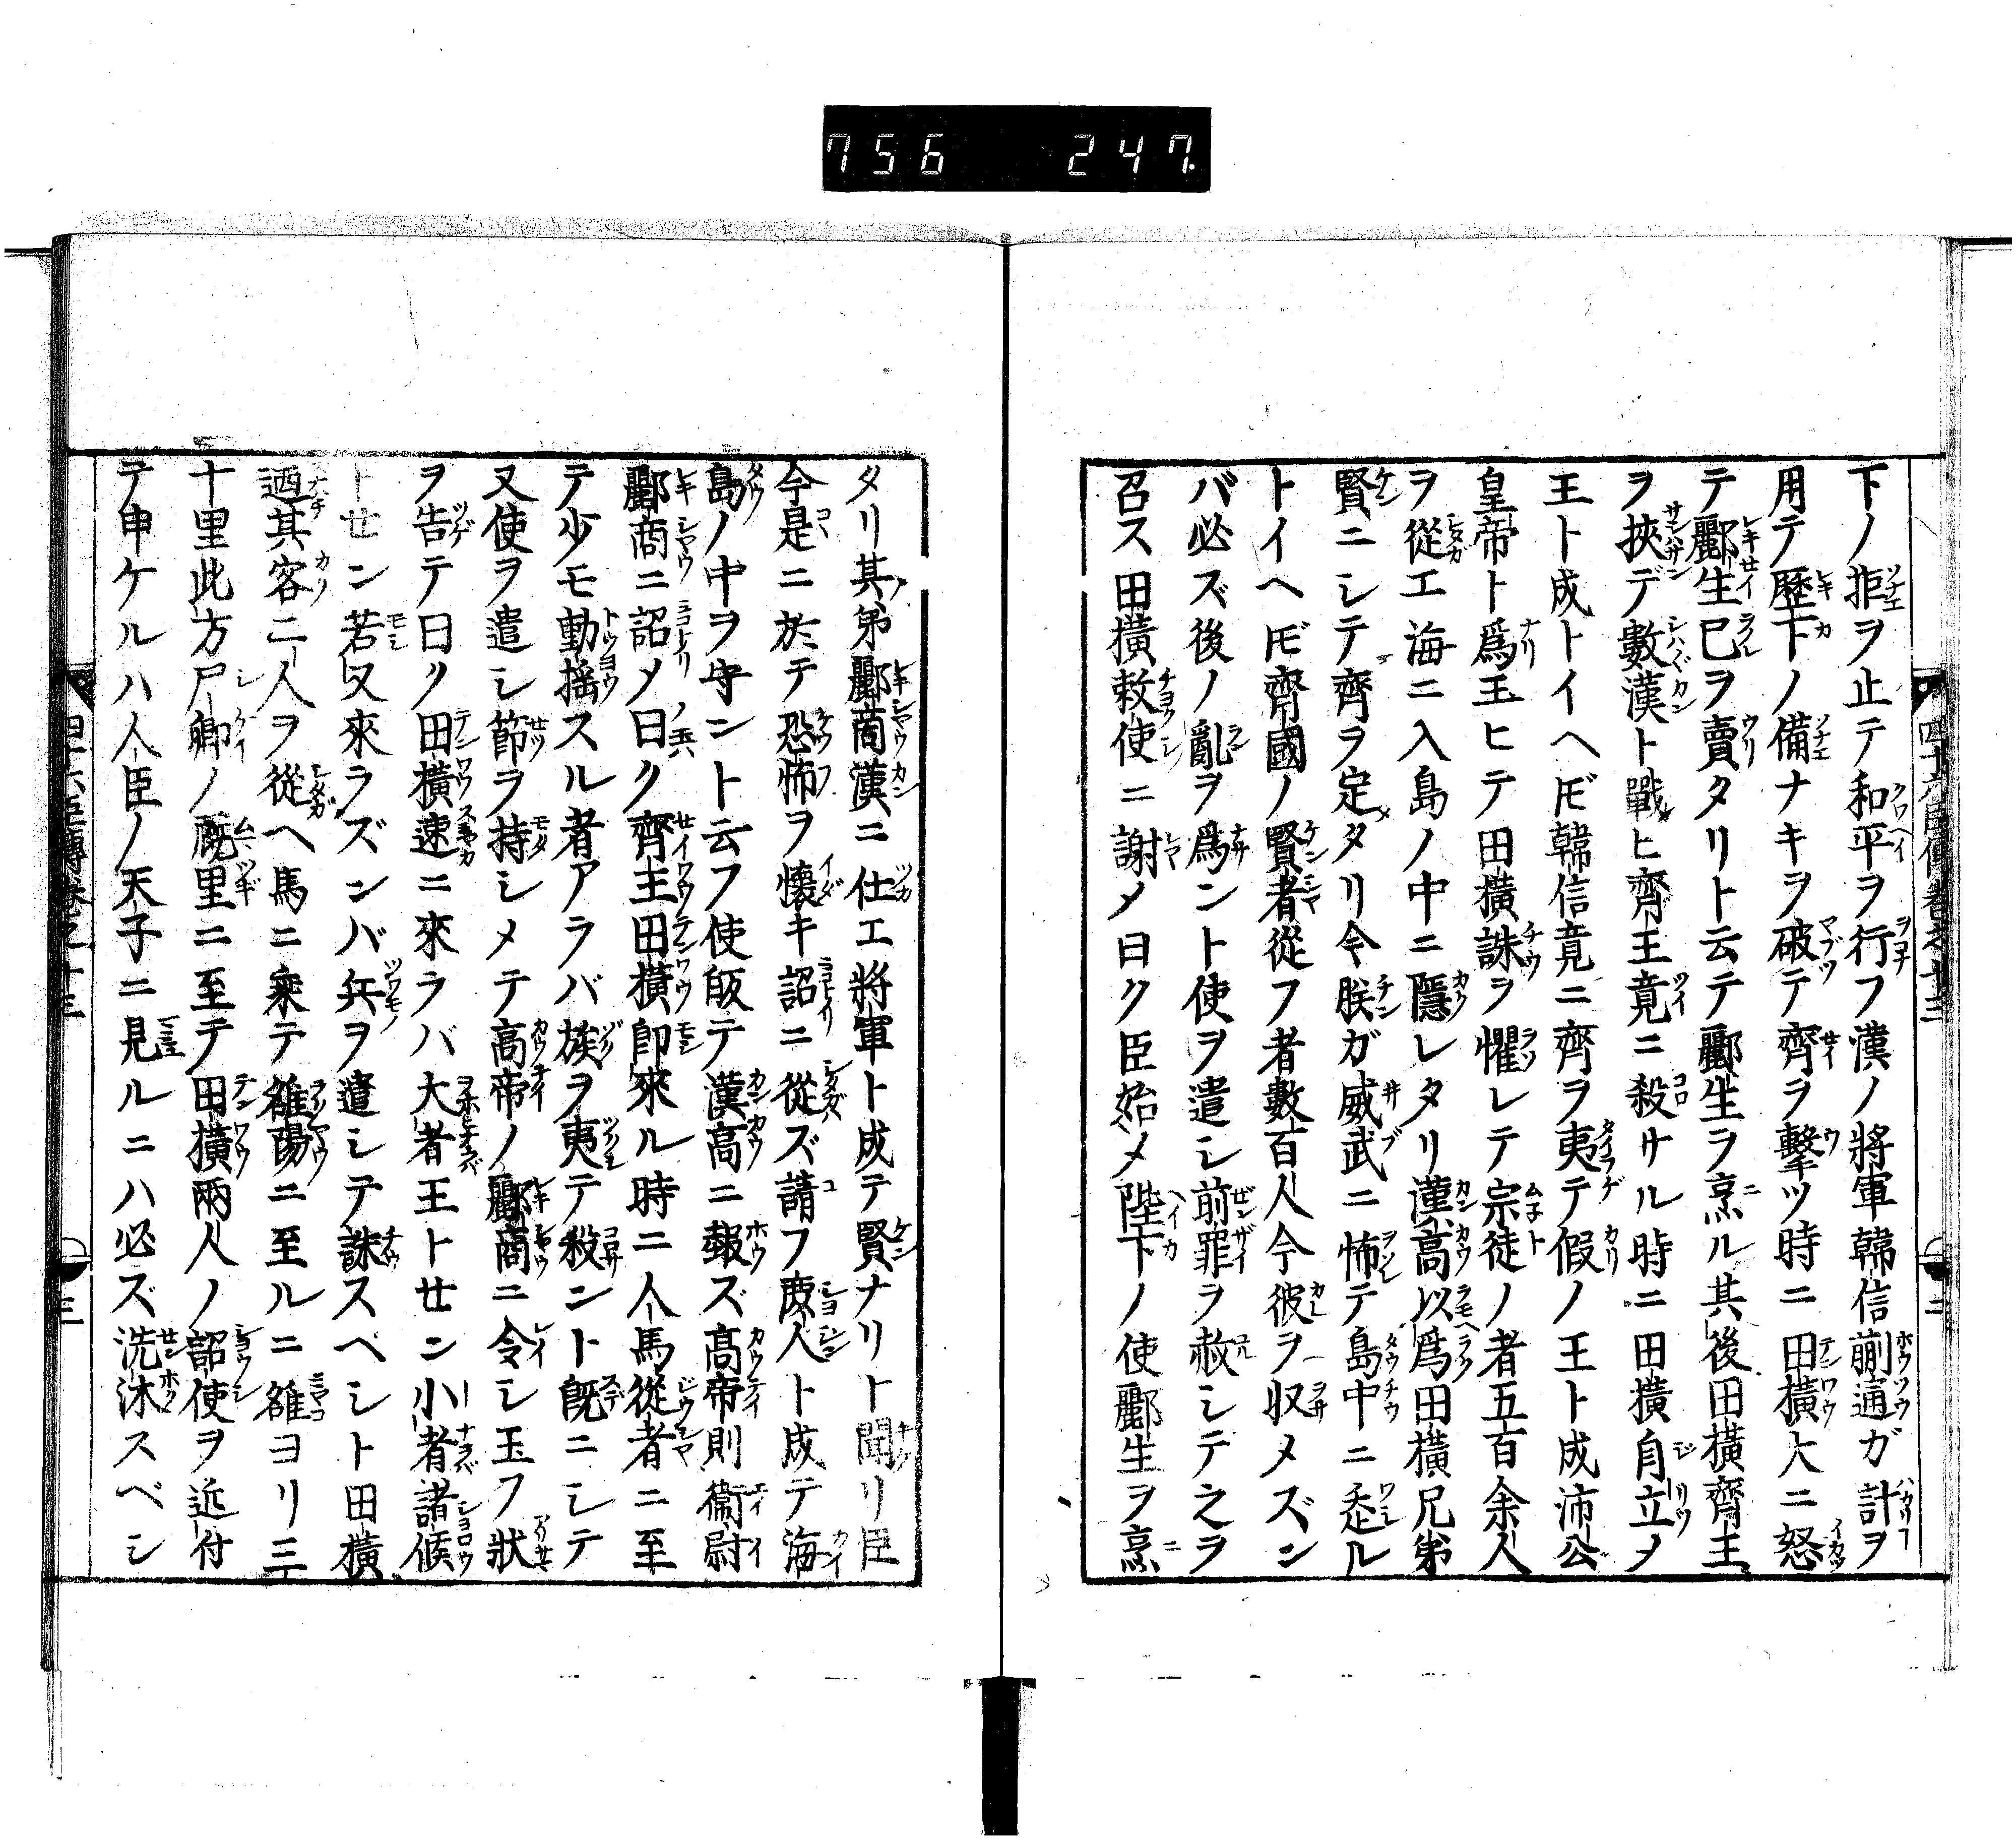 756 247
下ノ拒ヲ止テ和平ヲ行フ漢ノ將軍韓信蒯通ガ計ヲ
用テ歷下ノ備ナキヲ破デ齊ヲ擊ツ時ニ田橫大ニ怒
テ酈生已ヲ賣タリト云テ酈生ヲ烹ル其後田橫齊王
ヲ挾デ數漢ト戰ヒ齊王竟ニ殺サル時ニ田橫自立メ
王ト成トイヘ𪜈韓信竟ニ齊ヲ夷テ假ノ王ト成沛公
皇帝ト爲玉ヒテ田橫誅ヲ懼レテ宗徒ノ者五百余人
ヲ從エ海ニ入島ノ中ニ隱レタリ漢高以爲田橫兄弟
賢ニシテ齊ヲ定タリ今朕ガ威武ニ怖テ島中ニ忝ル
トイヘ𪜈齊國ノ賢者從フ者數百人今彼ヲ収メズン
バ必ズ後ノ亂ヲ爲ント使ヲ遣シ前罪ヲ赦シテ之ヲ
召ス田橫敕使ニ謝メ曰ク臣始メ陛下ノ使酈生ヲ烹
タリ其弟酈商漢ニ仕エ將軍ト成テ賢ナリト聞リ臣
今是ニ於テ恐怖ヲ懷キ詔ニ從ズ請フ庻人ト成テ海
島ノ中ヲ守ント云フ使皈テ漢高ニ報ズ高帝則衞尉
酈商ニ詔メ曰ク齊王田橫卽來ル時ニ人馬從者ニ至
テ少モ動搖スル者アラバ族ヲ夷テ殺ント旣ニシテ
又使ヲ遣シ節ヲ持シメテ高帝ノ酈商ニ令シ玉フ狀
ヲ告テ曰ク田橫速ニ來ラバ大者王トセン小者諸候
トセン若又來ラズンバ兵ヲ遣シテ誅スベシト田橫
迺其客二人ヲ從ヘ馬ニ乘テ雒陽ニ至ルニ雒ヨリ三
十里此方尸鄉ノ厩里ニ至テ田橫兩人ノ詔使ヲ近付
テ申ケルハ人臣ノ天子ニ見ルニハ必ズ洗沐スベシ
四十六臣傳卷之十三 三